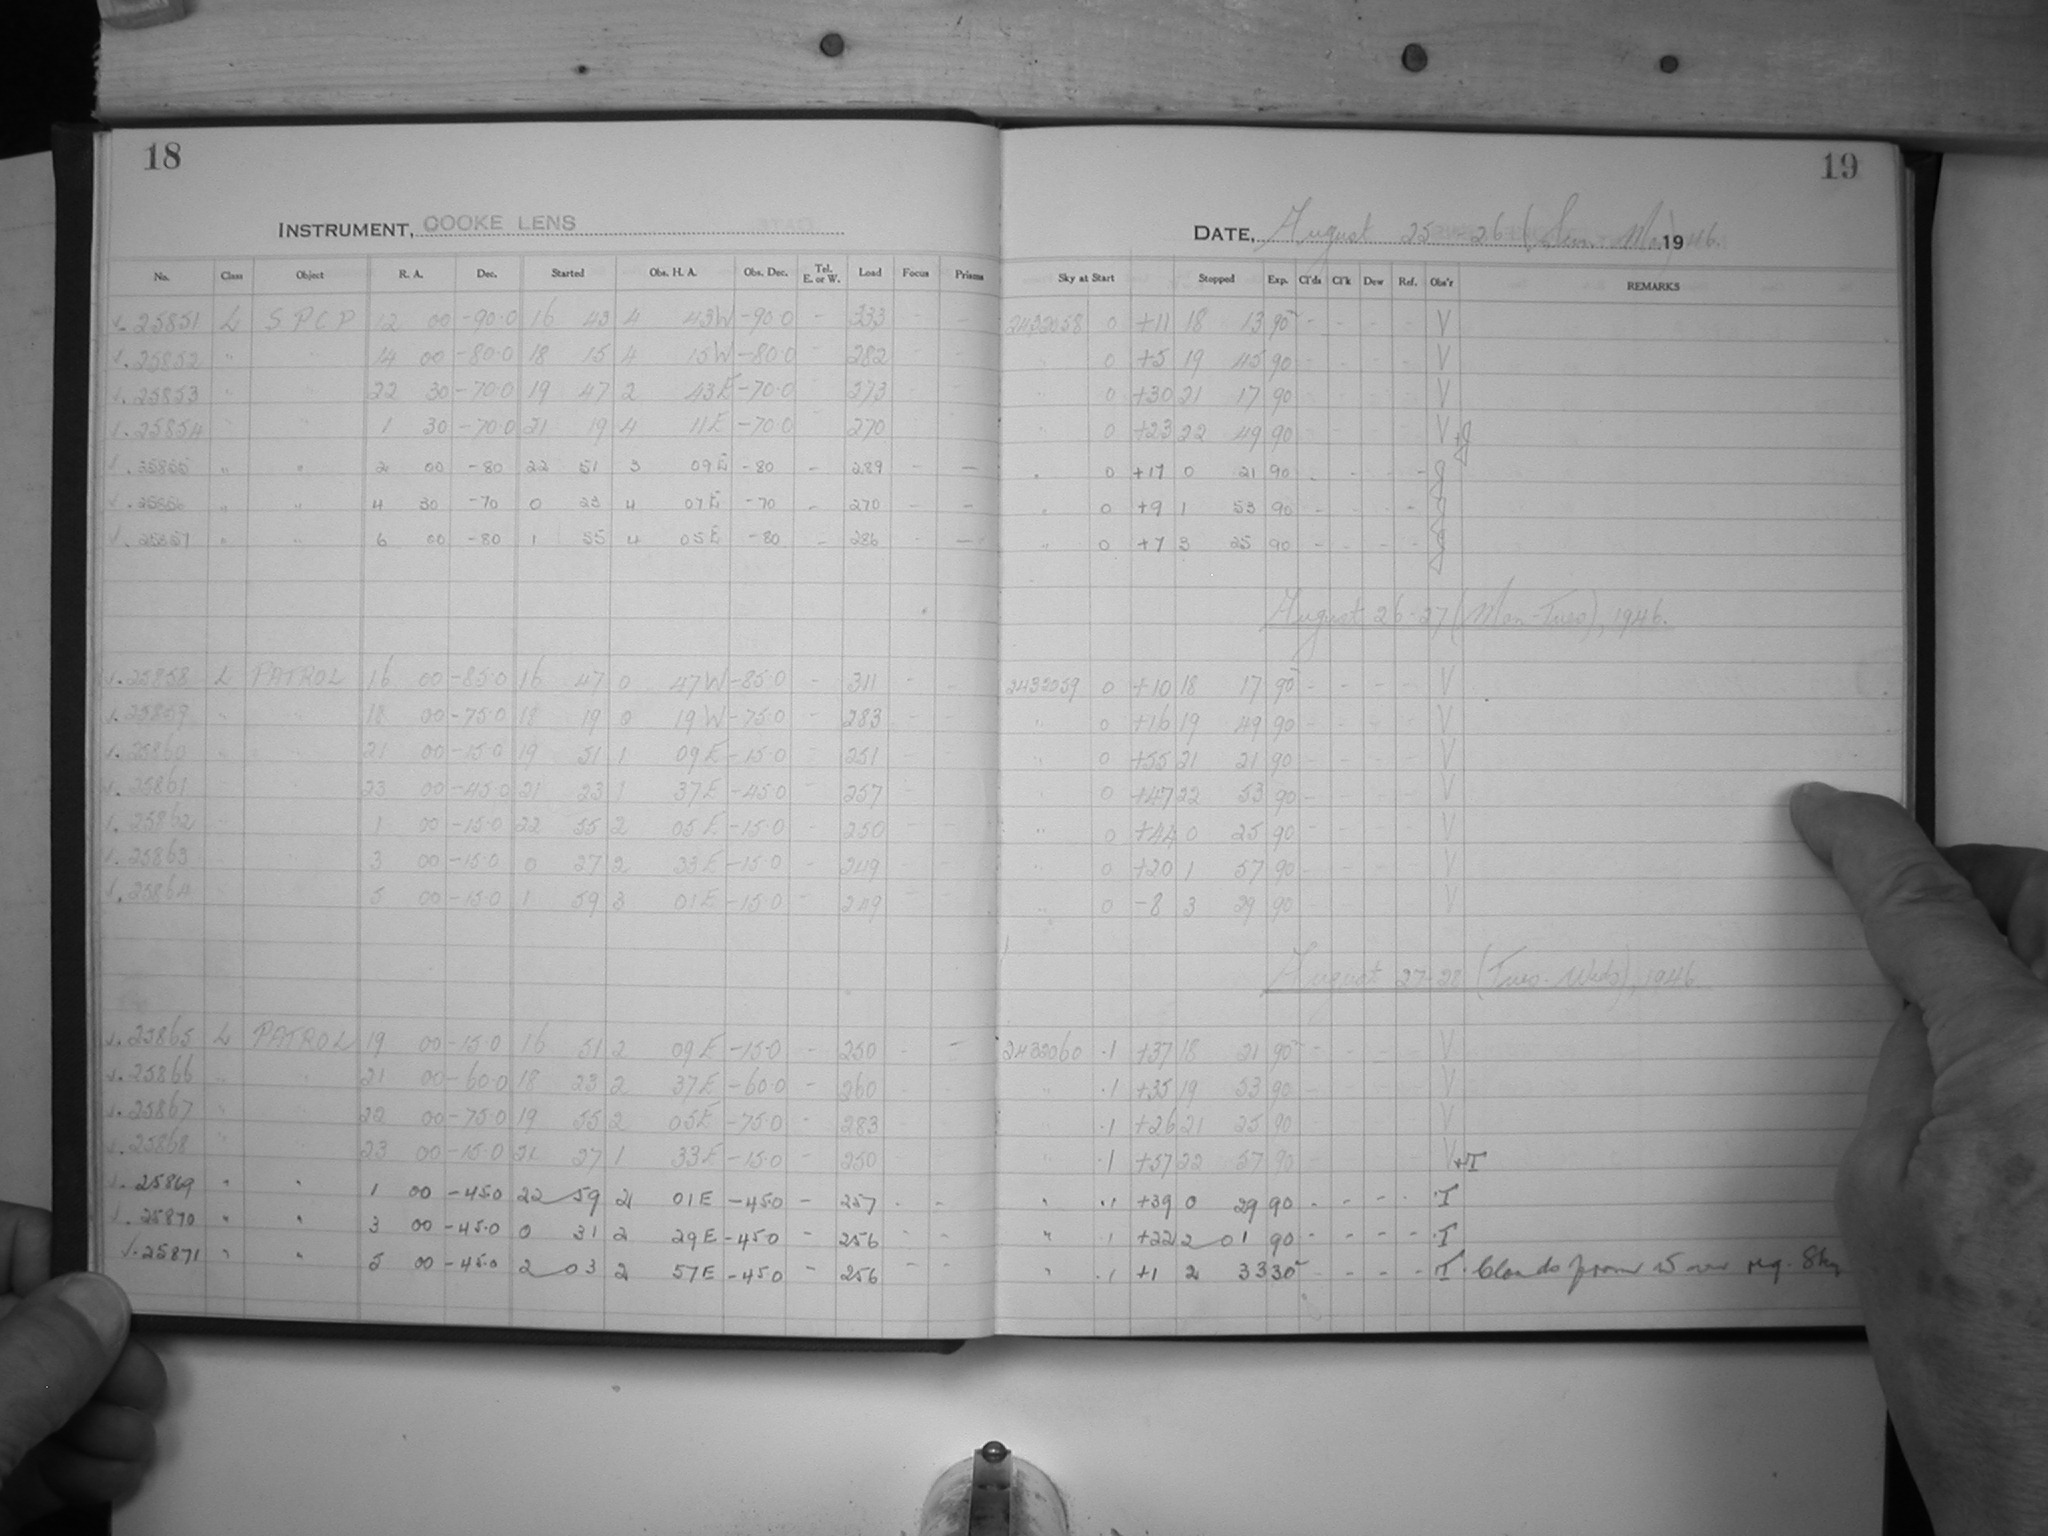 18
INSTRUMENT, COOKE LENS
No. Class Object R. A. Dec. Started Obs. H. A. Obs. Dec. Tel. E. or W. Load Focus Prisms
25851 L SPCP 12 00 -90.0 16 43 4 43W -90.0 - 333 - -
25852 " " 14 00 -80.0 18 15 4 15W -80.0 - 282 - -
25853 " " 22 30 -70.0 19 47 2 43E -70.0 273 - -
25854 " " 1 30 -70.0 21 19 4 11E -70.0 270 - -
25855 " " 2 00 -80 22 51 3 09E -80 - 289 - -
25856 " " 4 30 -70 0 23 4 07E -70 - 270 - -
25857 " " 6 00 -80 1 55 4 05E -80 - 286 - -
25858 L PATROL 16 00 -85.0 16 47 0 47W -85.0 - 311 - -
25859 " " 18 00 -75.0 18 19 0 19W -75.0 - 283 - -
25860 " " 21 00 -15.0 19 51 1 09E -15.0 - 251 - -
25861 23 00 -45.0 21 23 1 37E -45.0 - 257 - -
25862 1 00 -15.0 22 55 2 05E -15.0 - 250 - -
25863 3 00 -15.0 0 27 2 33E -15.0 - 249 - -
25864 5 00 -15.0 1 59 3 01E -15.0 - 249 - -
25865 L PATROL 19 00 -15.0 16 51 2 09E -15.0 - 250 - -
25866 " " 21 00 -60.0 18 23 2 37E -60.0 - 260 - -
25867 " " 22 00 -75.0 19 55 2 05E -75.0 - 283 - -
25868 " " 23 00 -15.0 21 27 1 33E -15.0 - 250 - -
25869 " " 1 00 -45.0 22 59 2 01E -45.0 - 257 - -
25870 " " 3 00 -45.0 0 31 2 29E -45.0 - 256 - -
25871 " " 5 00 -45.0 2 03 2 57E -45.0 - 256 - -
19
DATE, August 25-26 (Sun-Mon) 1946.
Sky at Start Stopped Exp. Cl'ds Cl'k Dew Ref. Obs'r REMARKS
2432058 0 +11 18 13 90 - - - - V
0 +5 19 45 90 - - - - V
" 0 +30 21 17 90 - - - - V
" 0 +23 22 49 90 - - - - V+J
" 0 +17 0 21 90 - - - - J
" 0 +9 1 53 90 - - - - J
" 0 +7 3 25 90 - - - - J
August 26-27 (Mon-Tues), 1946.
2432059 0 +10 18 17 90 - - - - V
" 0 +16 19 49 90 - - - - V
" 0 +55 21 21 90 - - - - V
" 0 +47 22 53 90 - - - - V
" 0 +44 0 25 90 - - - - V
" 0 +20 1 57 90 - - - - V
" 0 -8 3 29 90 - - - - V
August 27-28 (Tues-Weds), 1946
2432060 .1 +37 18 21 90 - - - - V
" .1 +35 19 53 90 - - - - V
" .1 +26 21 25 90 - - - - V
" .1 +57 22 57 90 - - - - V+T
" .1 +39 0 29 90 - - - - T
" .1 +22 2 01 90 - - - - T
" .1 +1 2 33 30 - - - - T. Clouds from W over reg. Sky